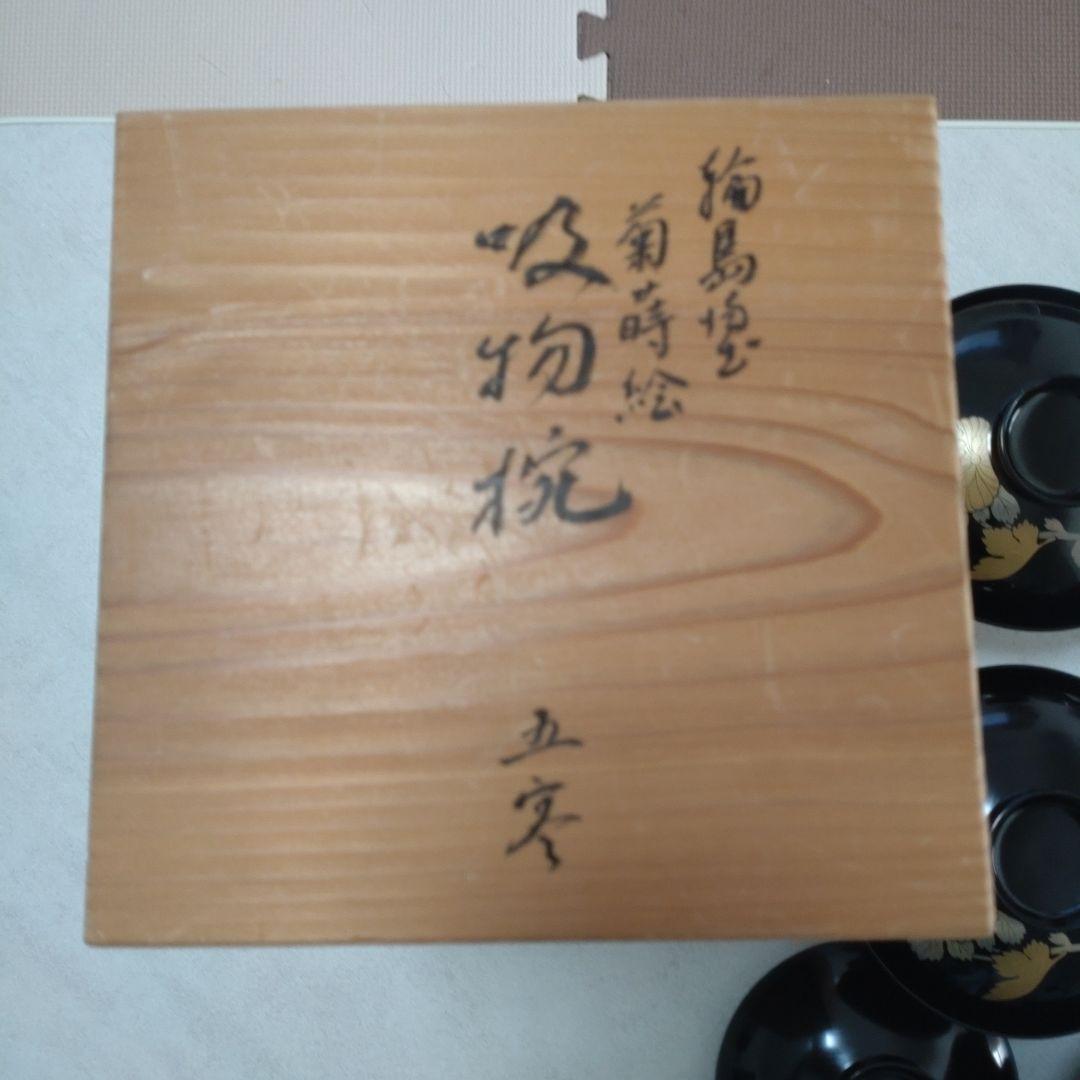 輪島塗
菊蒔絵
吸物椀
五客